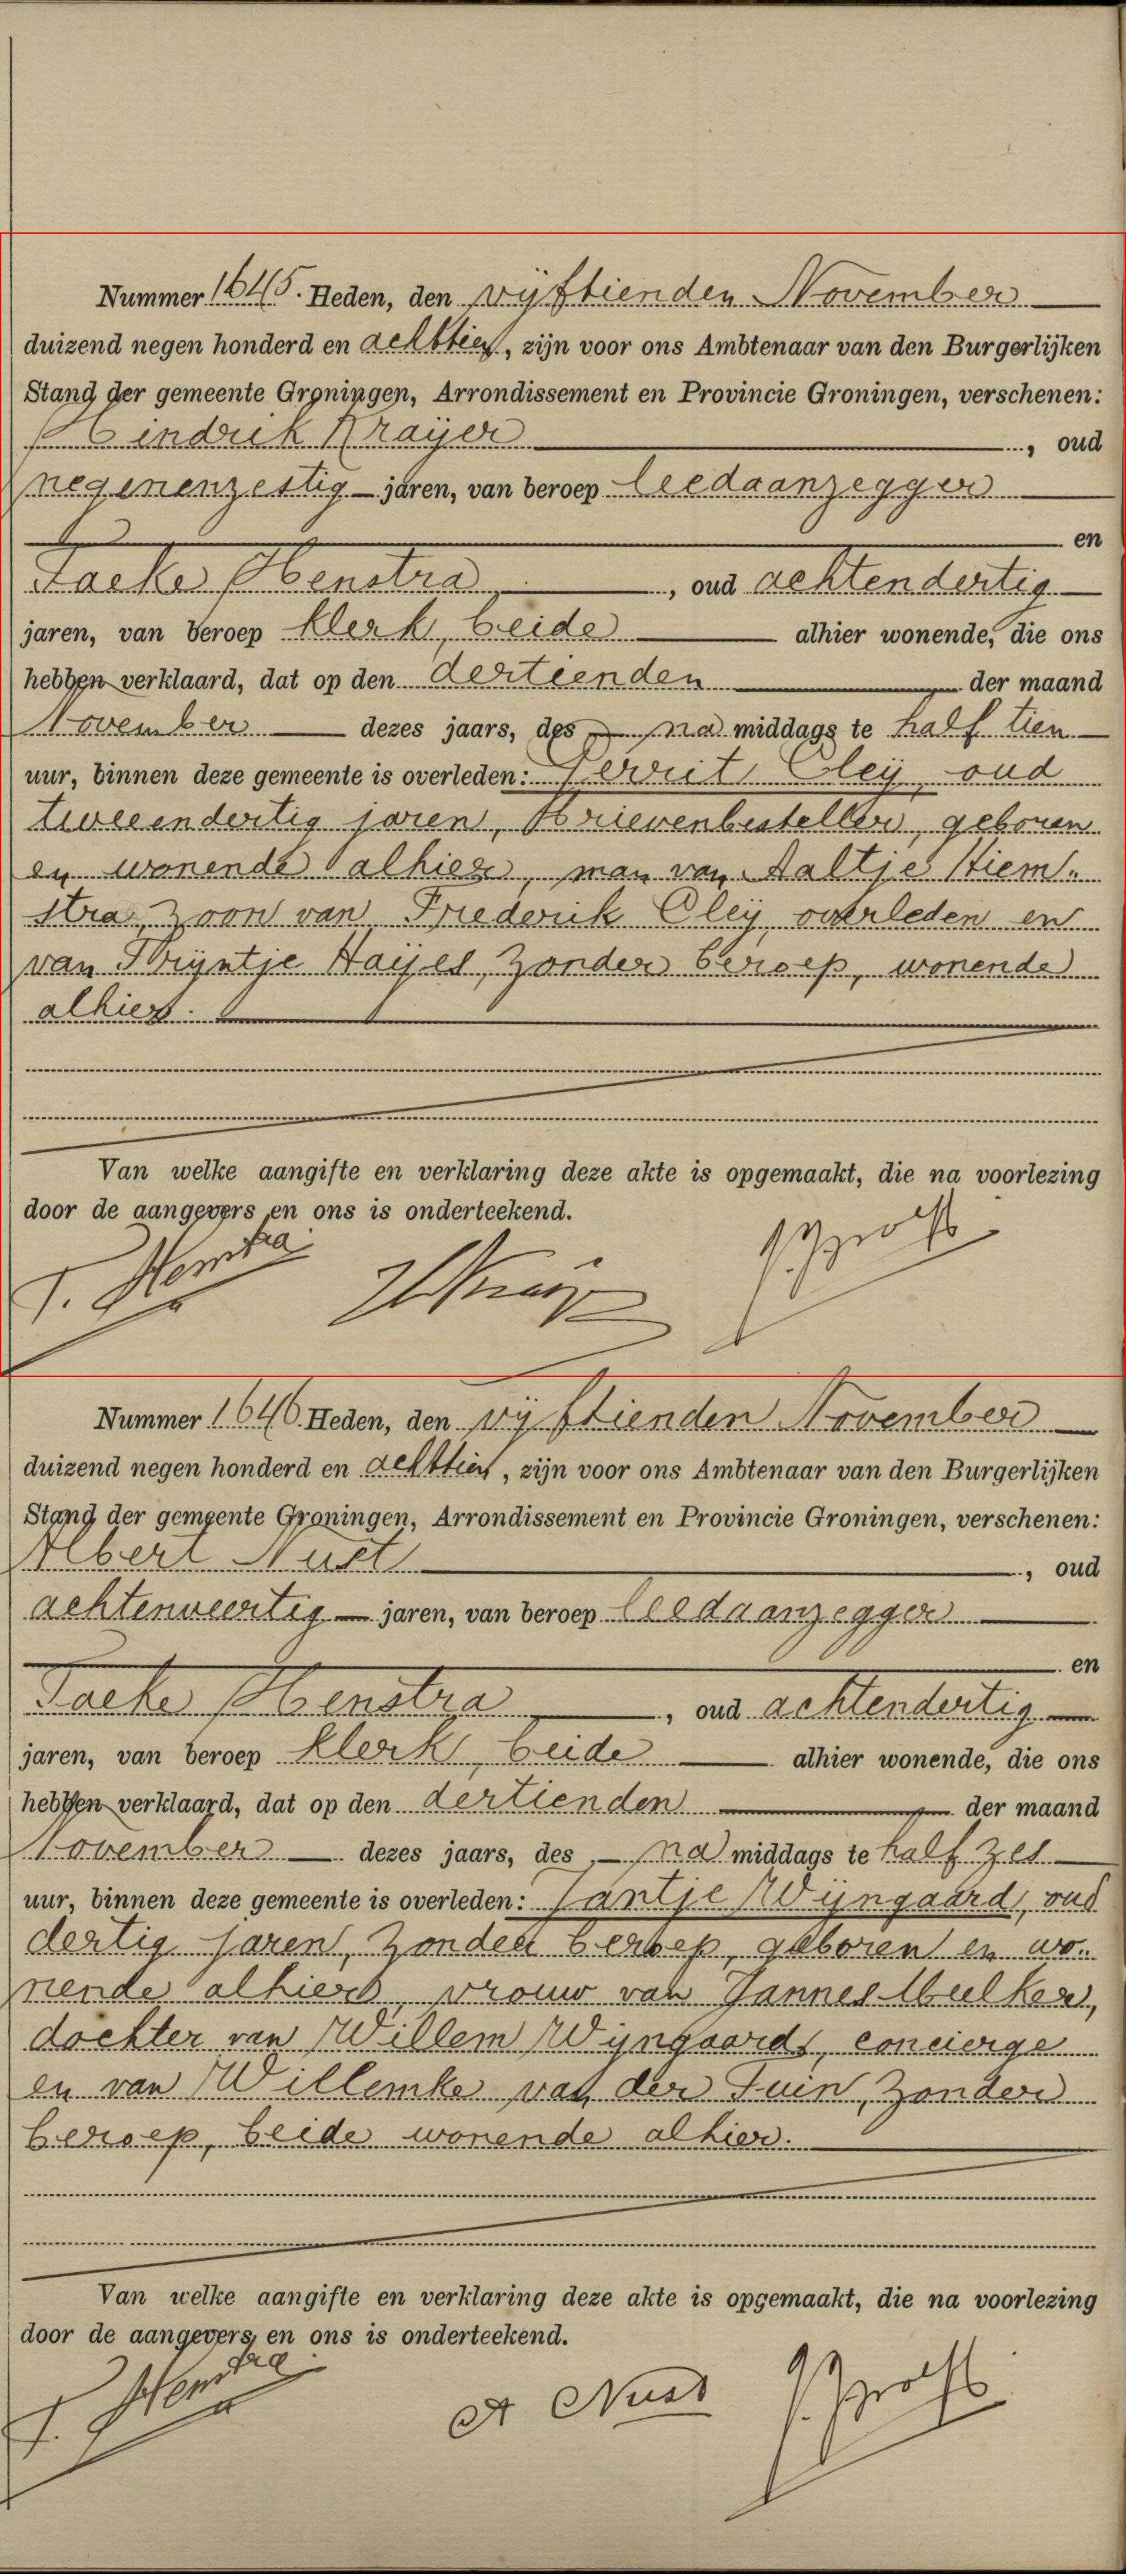 Nummer 1645. Heden, den vijftienden November
duizend negen honderd en achttien, zijn voor ons Ambtenaar van den Burgerlijken
Stand der gemeente Groningen, Arrondissement en Provincie Groningen, verschenen:
Hindrik Kraijer, oud
negenenzestig jaren, van beroep leedaanzegger
en
Tacke Henstra, oud achtendertig
jaren, van beroep klerk, beide alhier wonende, die ons
hebben verklaard, dat op den dertienden der maand
November dezes jaars, des na middags te half tien
uur, binnen deze gemeente is overleden: Gerrit Cleij, oud
tweeendertig jaren, Brievenbesteller, geboren
en wonende alhier, man van Aaltje Hiem„
stra, zoon van Friederik Cleij, overleden en
van Trijntje Haijes, zonder beroep, wonende
alhier.
Van welke aangifte en verklaring deze akte is opgemaakt, die na voorlezing
door de aangevers en ons is onderteekend.
T. Henstra HKraijer
Nummer 1646. Heden, den vijftienden November
duizend negen honderd en achttien, zijn voor ons Ambtenaar van den Burgerlijken
Stand der gemeente Groningen, Arrondissement en Provincie Groningen, verschenen:
Albert Nust, oud
achtenveertig jaren, van beroep leedaanzegger
en
Tacke Henstra, oud achtendertig
jaren, van beroep klerk, beide alhier wonende, die ons
hebben verklaard, dat op den dertienden der maand
November dezes jaars, des na middags te half zes
uur, binnen deze gemeente is overleden: Jantje Wijngaard, oud
dertig jaren, zonder beroep, geboren en wo„
nende alhier, vrouw van Jannes Mulker,
dochter van Willem Wijngaard, concierge
en van Willemke van der Tuin, zonder
beroep, beide wonende alhier.
Van welke aangifte en verklaring deze akte is opgemaakt, die na voorlezing
door de aangevers en ons is onderteekend.
T. Henstra A Nust